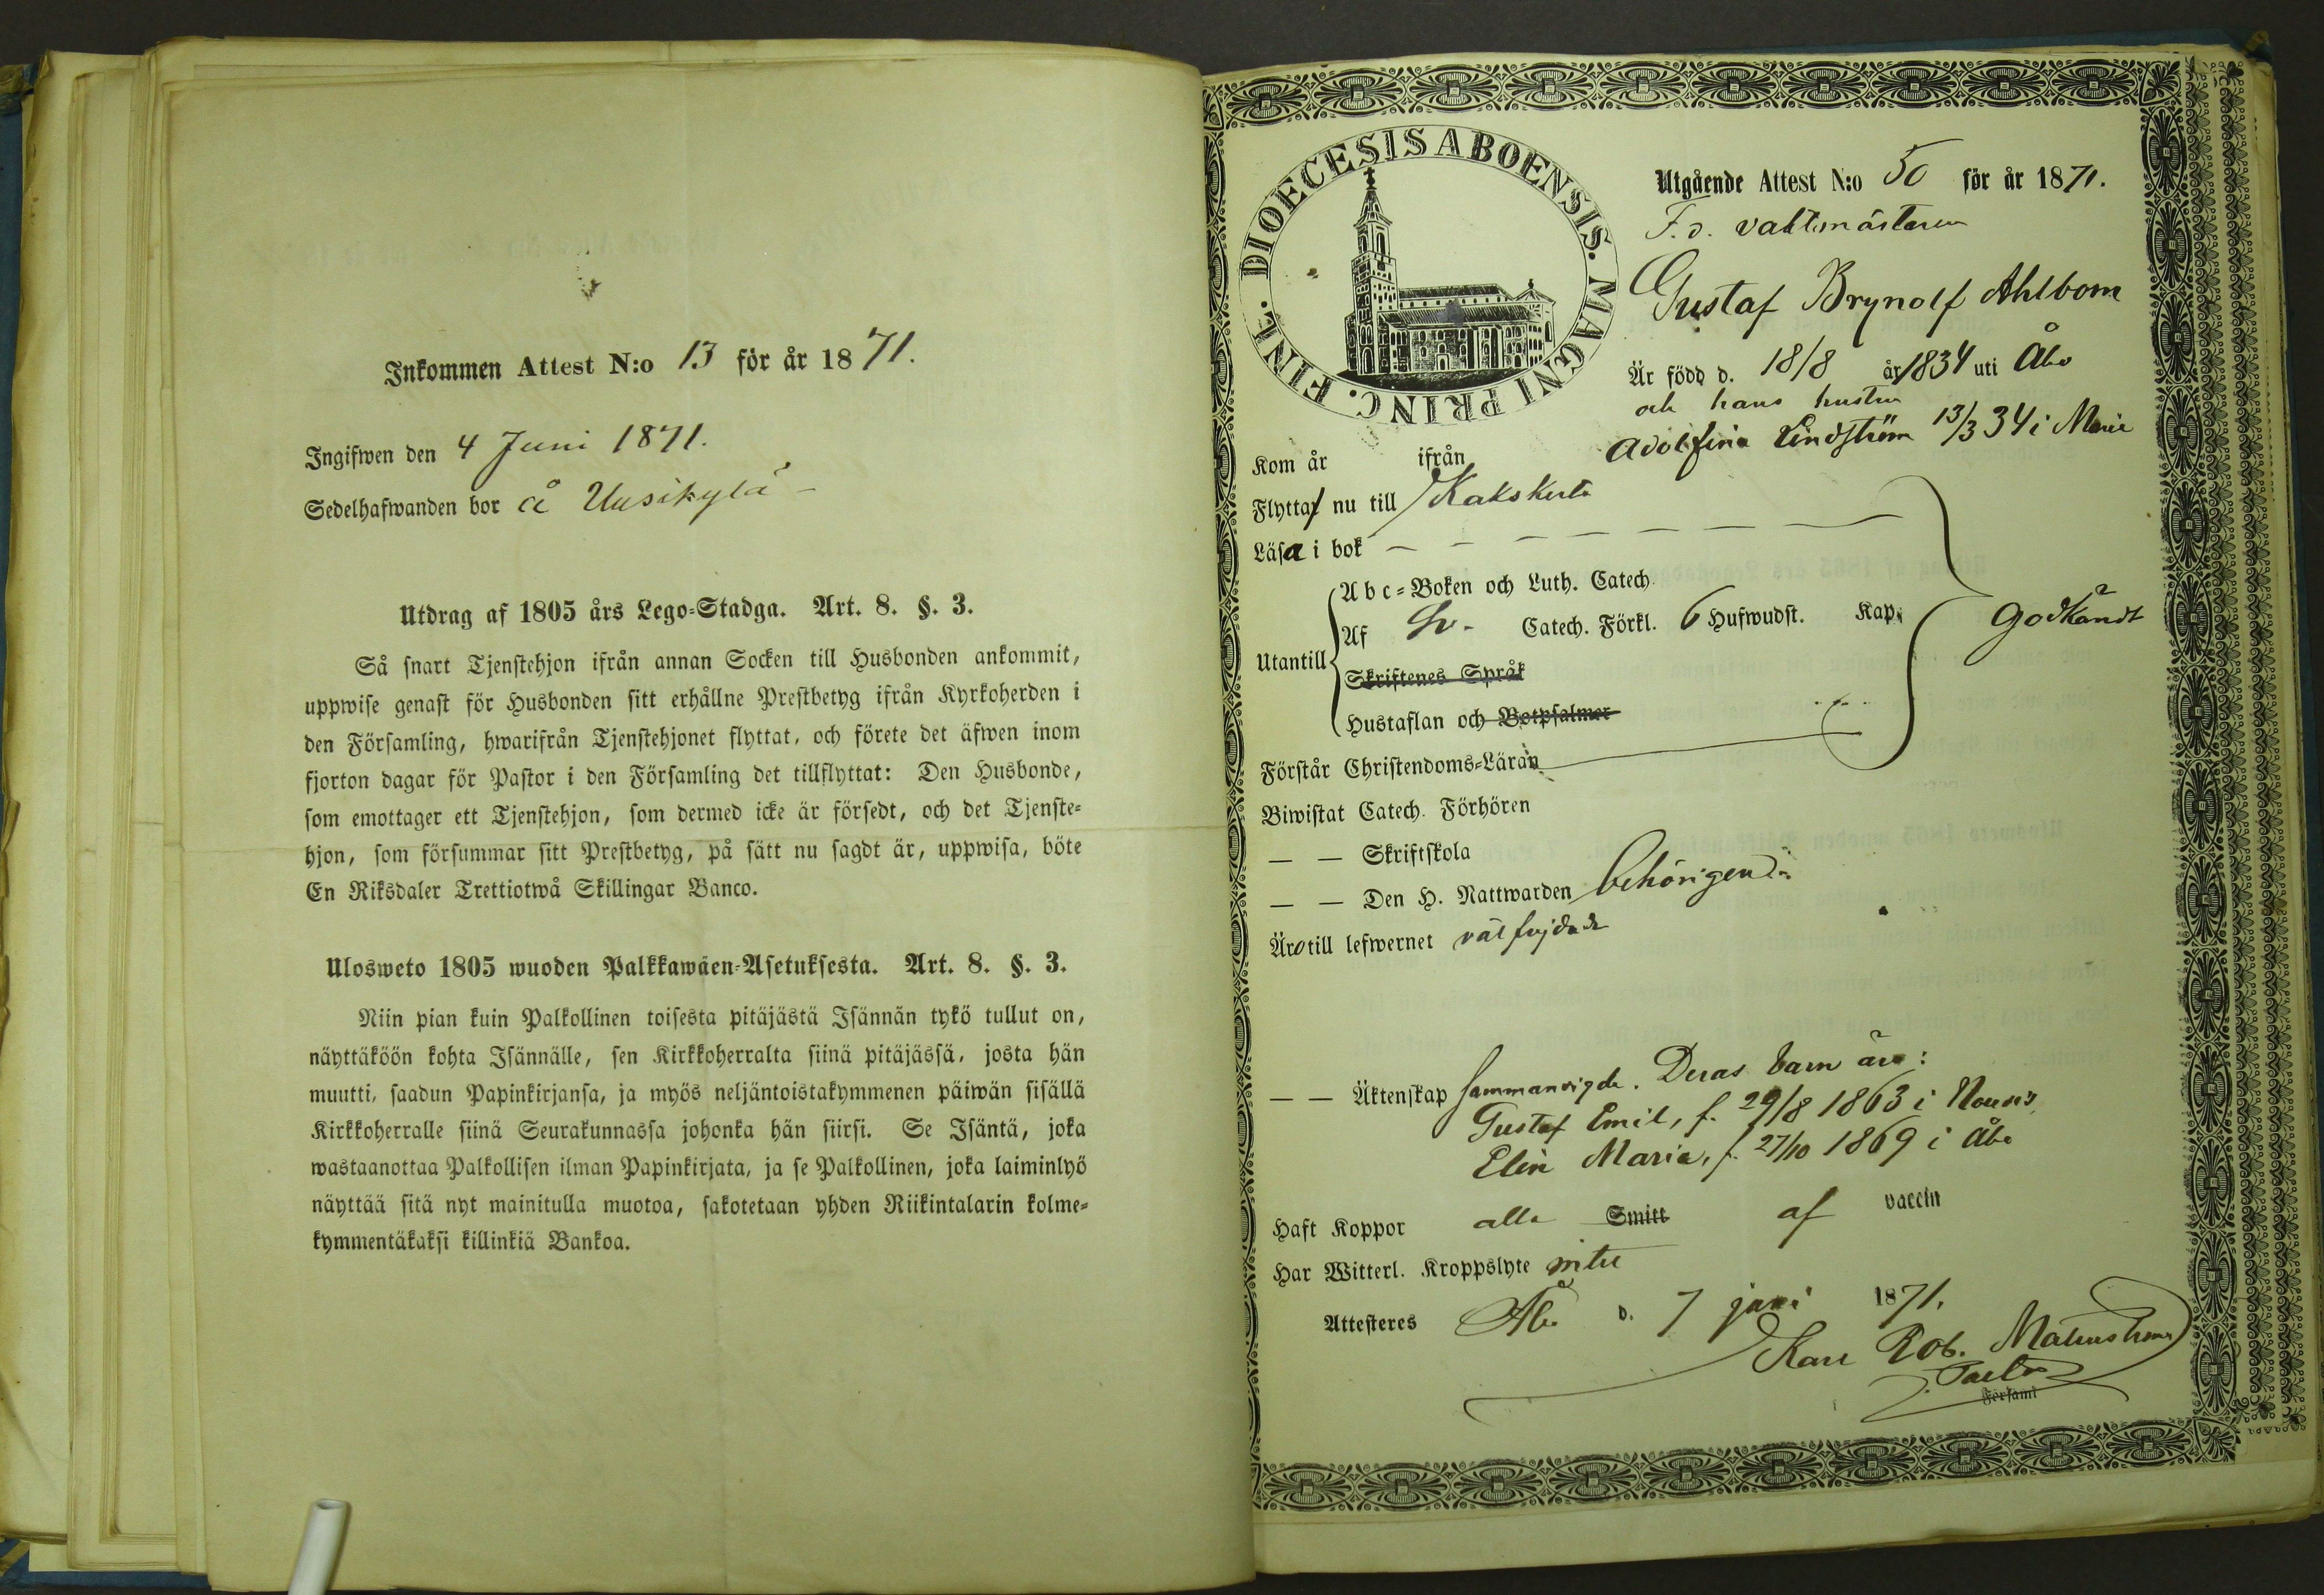 Inkommen Attest N:o 13 för år 1871.
Ingifwen den 4 Juni 1871.
Sedelhafwanden bor å Uusikylä
Utdrag af 1805 års Lego-Stadga. Art. 8. §. 3.
Så snart Tjenstehjon ifrån annan Socken till Husbonden ankommit,
uppwise genast för Husbonden sitt erhållne Prestbetyg ifrån Kyrkoherden i
den Församling, hwarifrån Tjenstehjonet flyttat, och förete det äfwen inom
fjorton dagar för Pastor i den Församling det tillflyttat: Den Husbonde,
som emottager ett Tjenstehjon, som dermed icke är försedt, och det Tjenste-
hjon, som försummar sitt Prestbetyg, på sätt nu sagdt är, uppwisa, böte
En Riksdaler Trettiotwå Skillingar Banco.
Ulosweto 1805 wuoden Palkkawäen-Asetuksesta. Art. 8. §. 3.
Niin pian kuin Palkollinen toisesta pitäjästä Isännän tykö tullut on,
näyttäköön kohta Isännälle, sen Kirkkoherralta siinä pitäjässä, josta hän
muutti, saadun Papinkirjansa, ja myös neljäntoistakymmenen päiwän sisällä
Kirkkoherralle siinä Seurakunnassa johonka hän siirsi. Se Isäntä, joka
wastaanottaa Palkollisen ilman Papinkirjata, ja se Palkollinen, joka laiminlyö
näyttää sitä nyt mainitulla muotoa, sakotetaan yhden Riikintalarin kolme-
kymmentäkaksi killinkiä Bankoa.
DIOECESIS ABOENSIS. MAGNI PRINC. FINL.
Utgående Attest N:o 50 för år 1871.
F.d. vaktmästaren
Gustaf Brynolf Ahlbom
Är född d. 18/8 år 1834 uti Åbo
och hans hustru
Adolfina Lindström 13/3 34 i Marie
Kom år ifrån
Flytta nu till Kakskerta
Läsa i bok
Abc-Boken och Luth. Catech.
Utantill Af Sv. Catech. Förkl. 6 Hufwudst. Kap. godkändt
Skriftenes Språk
Hustaflan och Botpsalmer
Förstår Christendoms-Läran
Biwistat Catech. Förhören
— — Skriftskola
— — Den H. Nattwarden behörigen
Äro till lefwernet välfrejdade
— — Äktenskap sammanvigde. Deras barn äro:
Gustaf Emil, f. 29/8 1863 i Nousis
Elin Maria, f. 27/10 1869 i Åbo
Haft Koppor alla Smitt af vaccin
Har Witterl. Kroppslyte intet
Attesteres Åbo d. 7 juni 1871.
Karl Rob. Malmström
Pastor
Församl